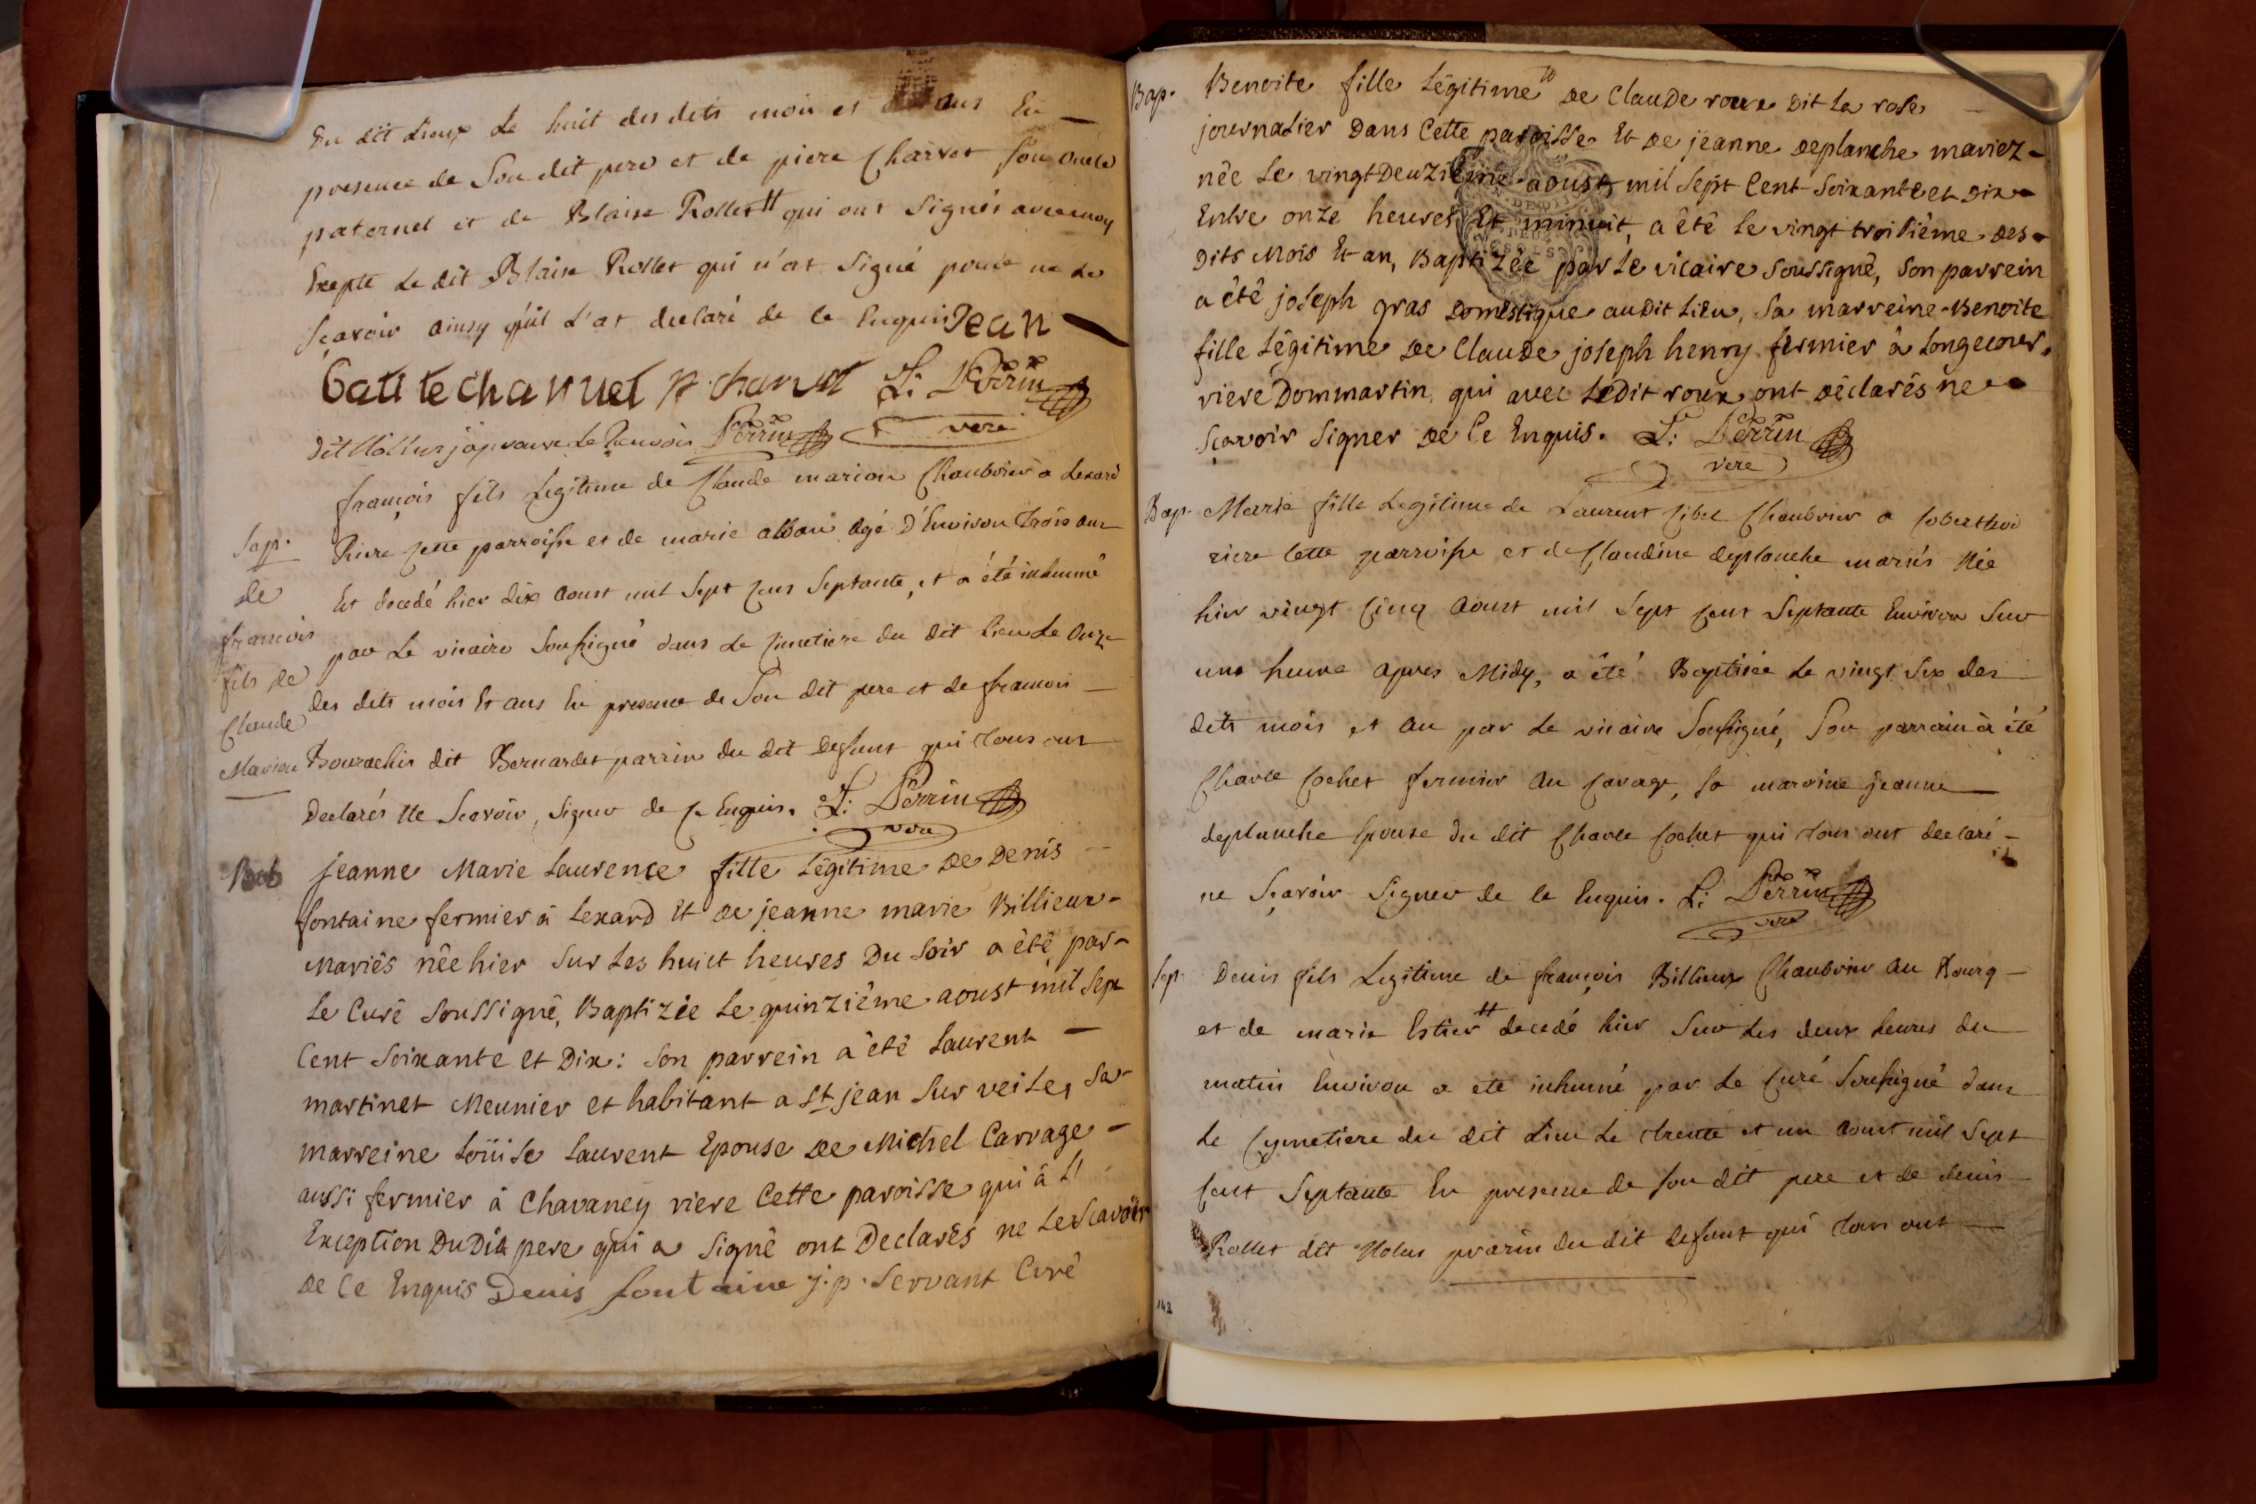 Du dit Lieux Le huit des dits mois et ans En
presence de Son dit pere et de piere Charvet son oncle
paternel et de Blaise Rollet # qui ont Signés avec moy
Exepte Le dit Blaise Rollet qui n'at Signé pour ne Le
Sçavoir ainsy qu'il L'at declaré de ce Enquis Jean
Batite charvuet p. charvet L: Perrin
vere
dit Nolus japrouve Le Renvois Perrin
Sep.
de
francois
fils de
Claude
Marion
françois fils Legitime de Claude marion Chaubvier a Lexard
Riere cette parroisse et de marie alban agé D'Environ trois ans
Est decedé hier dix aoust mil Sept cens Septante, et a été inhumé
par Le vicaire Soussigné dans Le cimetiere du dit Lieu Le onze
des dits mois Et ans En presence de Son dit pere et de francois
Bourachis dit Bernardet parrin du dit Defunt qui tous ont
Declarés ne Scavoir Signer de ce Enquis. L: Perrin
vere
Bab
jeanne Marie Laurence fille Légitime De Denis
fontaine fermier à Lexard Et De jeanne marie Billieux
Mariés née hier Sur Les huict heures Du Soir a été par
Le Curé Soussigné, Baptizée Le quinziême aoust mil Sept
Cent Soixante et Dix: Son parrein a été Laurent
martinet Meunier et habitant a St jean Sur veile, Sa
marreine Loüise Laurent Epouse De Michel Carrage
aussi fermier à Chavaney riere Cette paroisse qui à L'
Exception Du Dit pere qui a Signé ont Declarés ne Le Scavoir
de Ce Enquis Denis fontaine j. p. Servant Curé
Bap. Benoite fille Légitime De Claude roux Dit La rose
journalier Dans Cette paroisse Et De jeanne Deplanche mariez
née Le vingt Deuziême aoust mil Sept Cent Soixante et Dix
Entre onze heures Et minuit, a été Le vingt troisiême Des
Dits Mois Et an, Baptizée par Le vicaire Soussigné, Son parrein
a été joseph gras Domestique audit Lieu, Sa marreine Benoite
fille Légitime De Claude joseph henry fermier à Longecour
riere Dommartin qui avec Ledit roux ont Déclarés ne
Sçavoir Signer De Ce Enquis. L: Perrin
vere
Bap. Marie fille Legitime de Laurent Cibet Chaubvier a
riere Cette parroisse et de Claudine deplanche mariés Née
hier vingt Cinq aoust mil Sept Cent Septante Environ Sur
une heure apres Midy, a été Baptisée Le vingt Six des
dits mois et an par Le vicaire Soussigné, Son parrain a été
Charle Cochet fermier au Carage, Sa maroine jeanne
deplanche Epouse du dit Charle Cochet qui tous ont declaré
ne Sçavoir Signer de ce Enquis. L: Perrin
vere
Sep. Denis fils Legitime de françois Billieux Chaubvier au Bourg
et de marie Estier # decedé hier Sur Les deux heures du
matin Environ a eté inhumé par Le Curé Soussigné dans
Le Cymetiere du dit Lieu Le trente et un aoust mil Sept
Cent Septante En presence de Son dit pere et de denis
Rollet dit Nolus parrin du dit defunt qui tous ont
142